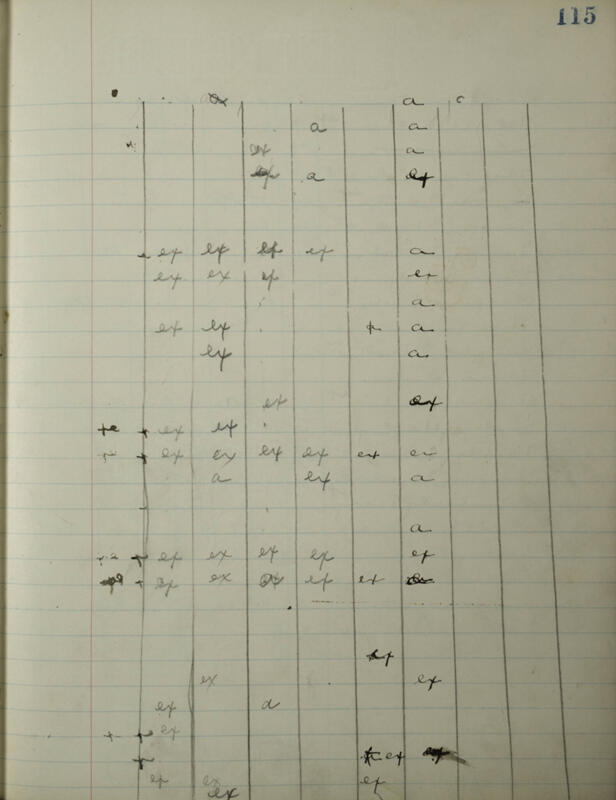 115
a
a a
a
a ex
ex ex ex ex a
ex ex ex ex
a
ex ex a
ex a
ex ex
ex ex
ex ex ex ex ex ex
a ex a
a
ex ex ex ex ex
ex ex ex ex
ex
ex ex
ex a
ex
ex
ex ex ex
ex